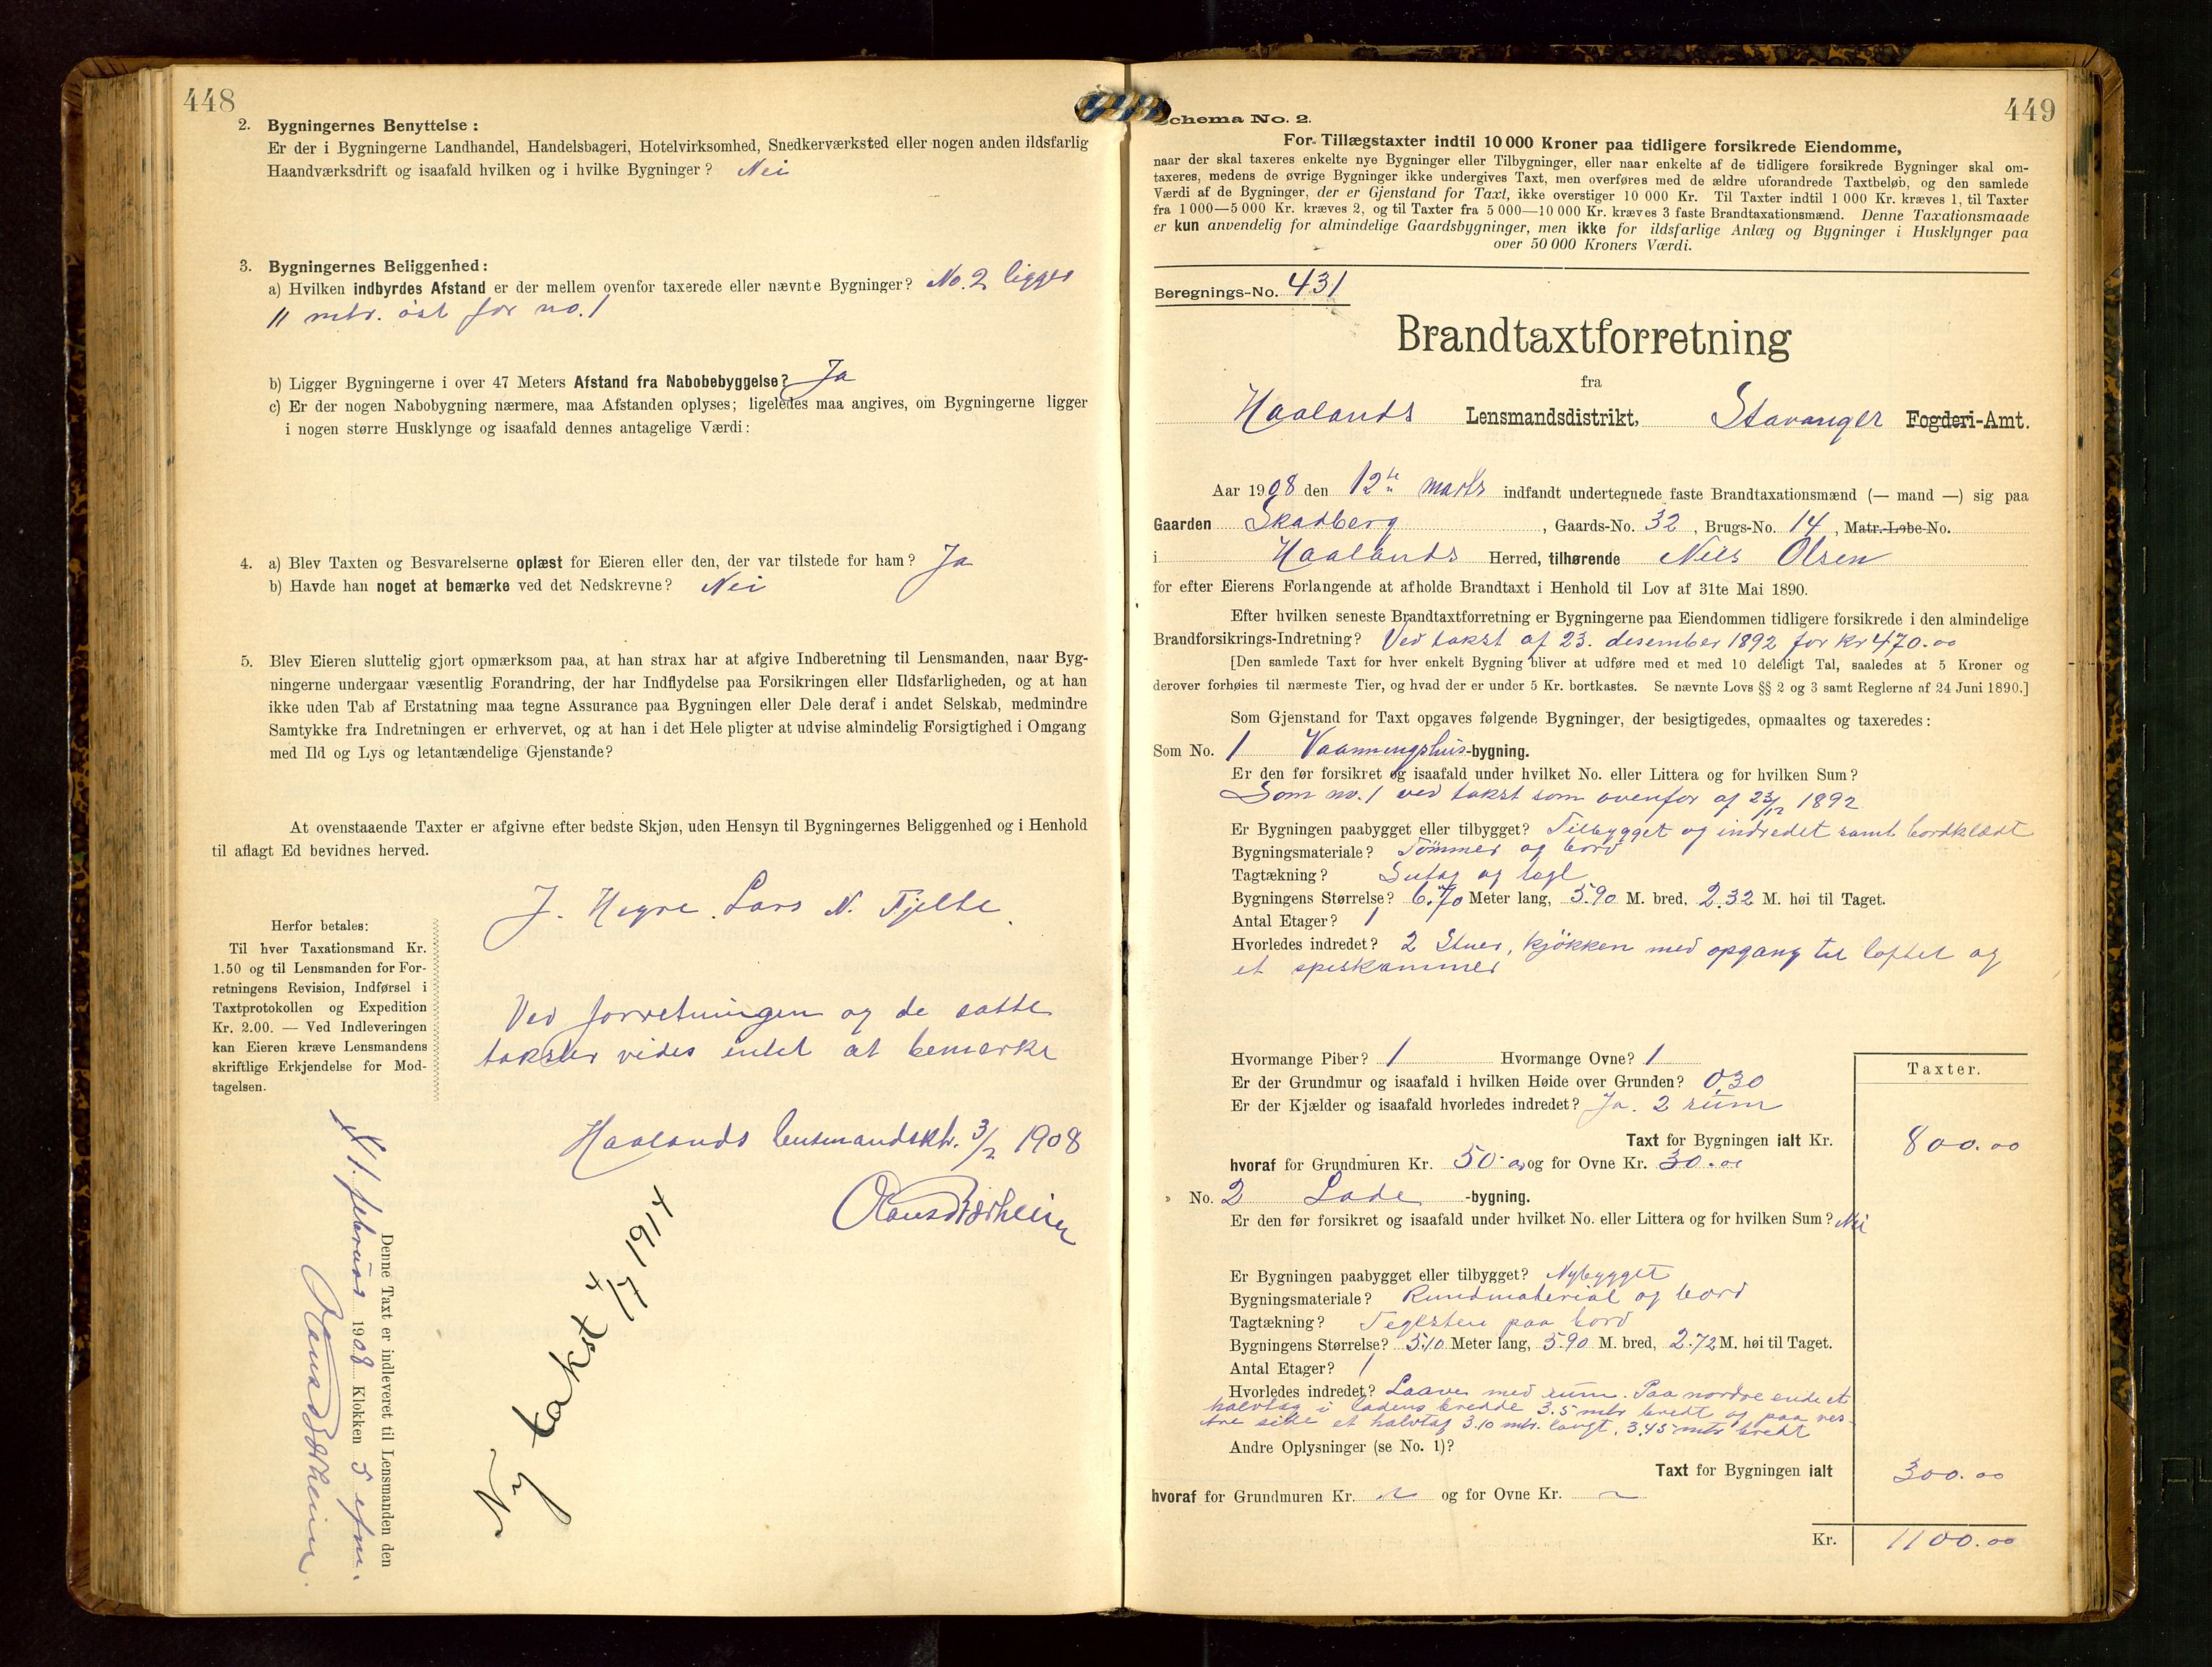 448
2. Bygningernes Benyttelse :
Er der i Bygningerne Landhandel, Handelsbageri, Hotelvirksomhed, Snedkerværksted eller nogen anden ildsfarlig
Haandværksdrift og isaafald hvilken og i hvilke Bygninger ? Nei
3. Bygningernes Beliggenhed :
a) Hvilken indbyrdes Afstand er der mellem ovenfor taxerede eller nævnte Bygninger? No. 2 ligger
11 mtr. öst for no. 1
b) Ligger Bygningerne i over 47 Meters Afstand fra Nabobebyggelse? Ja
c) Er der nogen Nabobygning nærmere, maa Afstanden oplyses; ligeledes maa angives, om Bygningerne ligger
i nogen større Husklynge og isaafald dennes antagelige Værdi :
4. a) Blev Taxten og Besvarelserne oplæst for Eieren eller den, der var tilstede for ham ? Ja
b) Havde han noget at bemærke ved det Nedskrevne ? Nei
5. Blev Eieren sluttelig gjort opmærksom paa, at han strax har at afgive Indberetning til Lensmanden, naar Byg-
ningerne undergaar væsentlig Forandring, der har Indflydelse paa Forsikringen eller Ildsfarligheden, og at han
ikke uden Tab af Erstatning maa tegne Assurance paa Bygningen eller Dele deraf i andet Selskab, medmindre
Samtykke fra Indretningen er erhvervet, og at han i det Hele pligter at udvise almindelig Forsigtighed i Omgang
med Ild og Lys og letantændelige Gjenstande?
At ovenstaaende Taxter er afgivne efter bedste Skjøn, uden Hensyn til Bygningernes Beliggenhed og i Henhold
til aflagt Ed bevidnes herved.
J. Hegre. Lars N. Tjelte.
Herfor betales:
Til hver Taxationsmand Kr.
1.50 og til Lensmanden for For-
retningens Revision, Indførsel i
Taxtprotokollen og Expedition
Kr. 2.00. — Ved Indleveringen
kan Eieren kræve Lensmandens
skriftlige Erkjendelse for Mod-
tagelsen.
Ved forretningen og de satte
takster vides intet at bemerke
Haalands lensmandsktr. 3/2 1908
Denne Taxt er indleveret til Lensmanden den
1. februar 1908 Klokken 5 efm.
Ny takst 4/7 1914
449
Schema No. 2.
For Tillægstaxter indtil 10 000 Kroner paa tidligere forsikrede Eiendomme,
naar der skal taxeres enkelte nye Bygninger eller Tilbygninger, eller naar enkelte af de tidligere forsikrede Bygninger skal om-
taxeres, medens de øvrige Bygninger ikke undergives Taxt, men overføres med de ældre uforandrede Taxtbeløb, og den samlede
Værdi af de Bygninger, der er Gjenstand for Taxt, ikke overstiger 10 000 Kr. Til Taxter indtil 1 000 Kr. kræves 1, til Taxter
fra 1 000—5 000 Kr. kræves 2, og til Taxter fra 5 000—10 000 Kr. kræves 3 faste Brandtaxationsmænd. Denne Taxationsmaade
er kun anvendelig for almindelige Gaardsbygninger, men ikke for ildsfarlige Anlæg og Bygninger i Husklynger paa
over 50 000 Kroners Værdi.
Beregnings-No. 431
Brandtaxtforretning
fra
Haalands Lensmandsdistrikt, Stavanger Fogderi-Amt.
Aar 1908 den 12te marts indfandt undertegnede faste Brandtaxationsmænd (— mand —) sig paa
Gaarden Skadberg, Gaards-No. 32, Brugs-No. 14, Matr.-Løbe-No.
i Haalands Herred, tilhørende Niels Olsen
for efter Eierens Forlangende at afholde Brandtaxt i Henhold til Lov af 31te Mai 1890.
Efter hvilken seneste Brandtaxtforretning er Bygningerne paa Eiendommen tidligere forsikrede i den almindelige
Brandforsikrings-Indretning? Ved takst af 23. desember 1892 for kr 470.00
[Den samlede Taxt for hver enkelt Bygning bliver at udføre med et med 10 deleligt Tal, saaledes at 5 Kroner og
derover forhøies til nærmeste Tier, og hvad der er under 5 Kr. bortkastes. Se nævnte Lovs §§ 2 og 3 samt Reglerne af 24 Juni 1890.]
Som Gjenstand for Taxt opgaves følgende Bygninger, der besigtigedes, opmaaltes og taxeredes :
Som No. 1 Vaaningshus-bygning.
Er den før forsikret og isaafald under hvilket No. eller Littera og for hvilken Sum?
Som no. 1 ved takst som ovenfor af 23/12 1892
Er Bygningen paabygget eller tilbygget? Tilbygget og indredet samt bordklædt
Bygningsmateriale? Tömmer og bord
Tagtækning? Sutag og tagl
Bygningens Størrelse? 6.70 Meter lang, 5.90 M. bred. 2.32 M. høi til Taget.
Antal Etager? 1
Hvorledes indredet? 2 Stuer, kjökken med opgang til loftet og
et speskammer
Hvormange Piber? 1 Hvormange Ovne? 1
Er der Grundmur og isaafald i hvilken Høide over Grunden? 0.30
Er der Kjælder og isaafald hvorledes indredet? Ja. 2 rum
Taxter.
Taxt for Bygningen ialt Kr. 800.00
hvoraf for Grundmuren Kr. 50.00 og for Ovne Kr. 30.00
» No. 2 Lade -bygning.
Er den før forsikret og isaafald under hvilket No. eller Littera og for hvilken Sum? Nei
Er Bygningen paabygget eller tilbygget? Nybygget
Bygningsmateriale? Rundmaterial og bord
Tagtækning? Teglsten paa bord
Bygningens Størrelse? 5.10 Meter lang, 5.90 M. bred, 2.72 M. høi til Taget.
Antal Etager? 1
Hvorledes indredet? Laave med rum. Paa nordre ende et
halvtag i ladens bredde 3.5 mtr bredt og paa ves-
tre side et halvtag 3.10 mtr. langt, 3.45 mtr bredt
Andre Oplysninger (se No. 1)?
Taxt for Bygningen ialt 300.00
hvoraf for Grundmuren Kr. og for Ovne Kr.
Kr. 1100.00